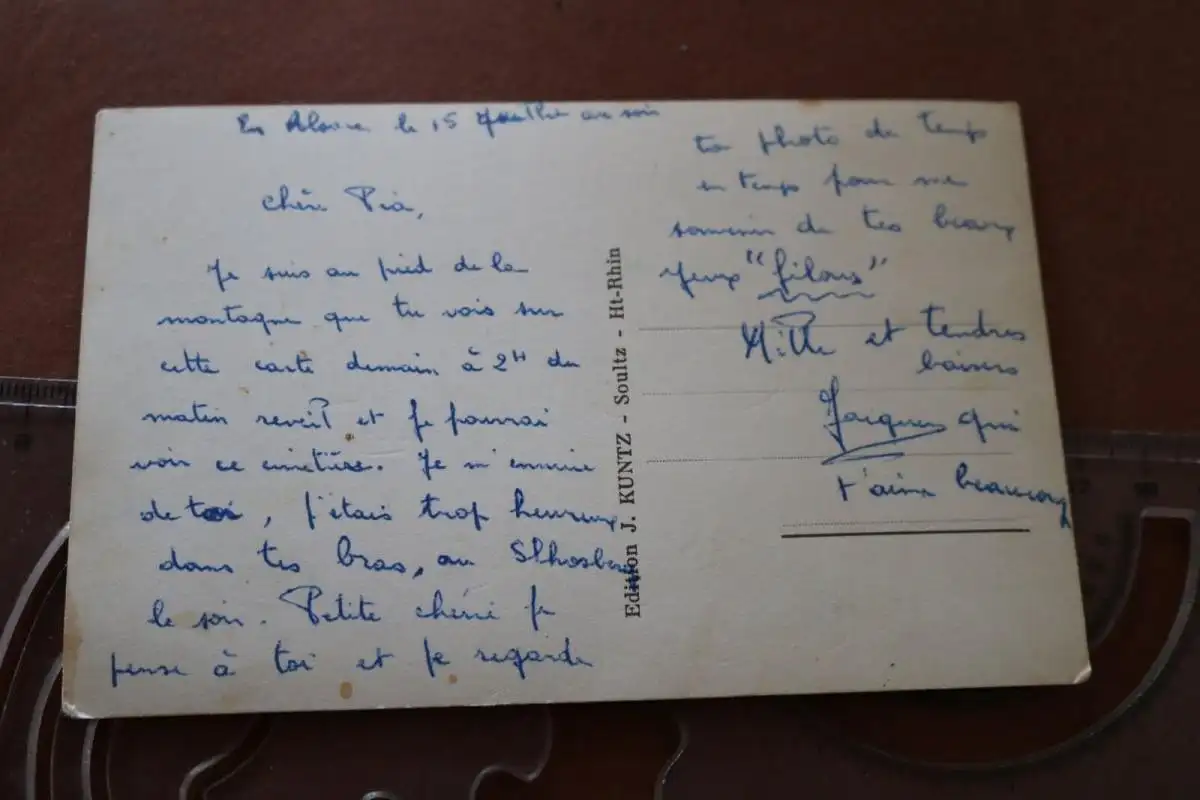 En Alsace le 15 Juillet au soir
chérie Pia,
Je suis au pied de la
montagne que tu vois sur
cette carte demain à 2H du
matin reveil et je pourrai
voir ce cimetière. Je m'ennuie
de toi, j'étais trop heureux
dans tes bras, au
le soir. Petite chérie je
pense à toi et je regarde
ta photo de temps
en temps pour me
souvenir de tes beaux
yeux "filous"
Mille et tendres
baisers
Jacques qui
t'aime beaucoup
Edition J. KUNTZ - Soultz - Ht-Rhin